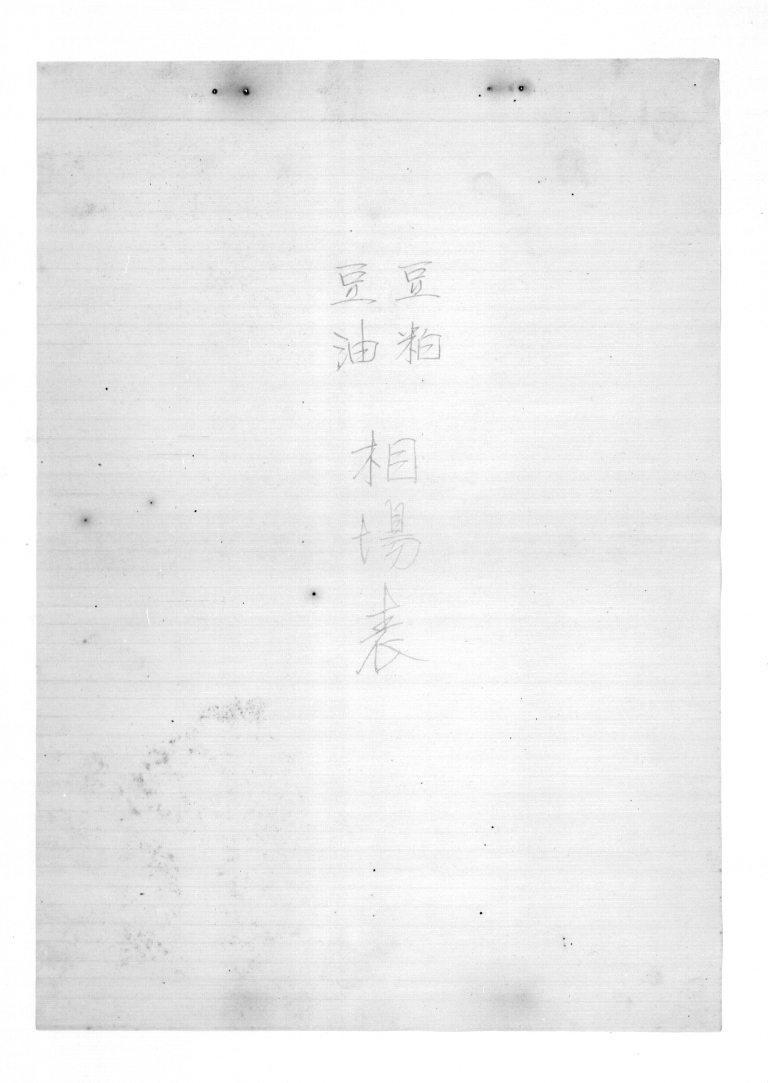 豆粕
豆油
相場表